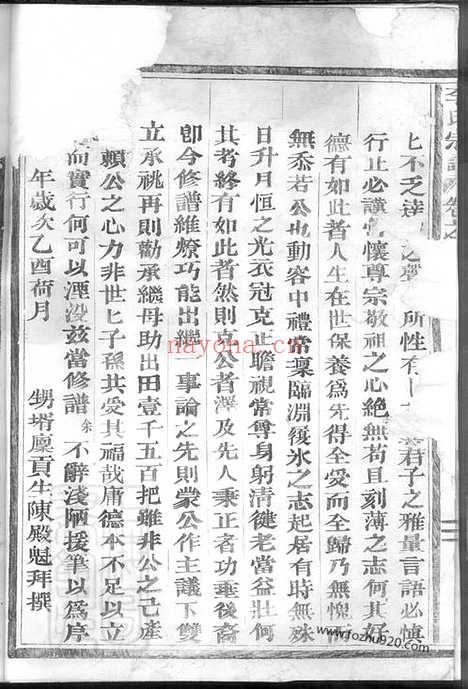 李氏宗譜卷之
匕不乏達 之 所性有 君子之雅量言語必慎
行止必謹常懷尊宗敬祖之心絶無苟且刻薄之志何其好
德有如此者人生在世保養爲先得全受而全歸乃無愧而
無忝若公也動容中禮常稟臨淵履氷之志起居有時無殊
日升月恒之光衣冠克正瞻視常尊身躬清健老當益壯何
其考終有如此者然則克公者澤及先人秉正者功垂後裔
卽今修譜維燎巧能出繼一事論之先則蒙公作主議下雙
立承祧再則勸承繼母助出田壹千五百把雖非公之己產
賴公之心力非世匕子孫共受其福哉庸德本不足以立
而實行何可以湮没兹當修譜余不辭淺陋援筆以爲序
年歲次乙酉荷月 甥壻廩貢生陳殿魁拜撰
nayona.cn
www.fozhu920.com